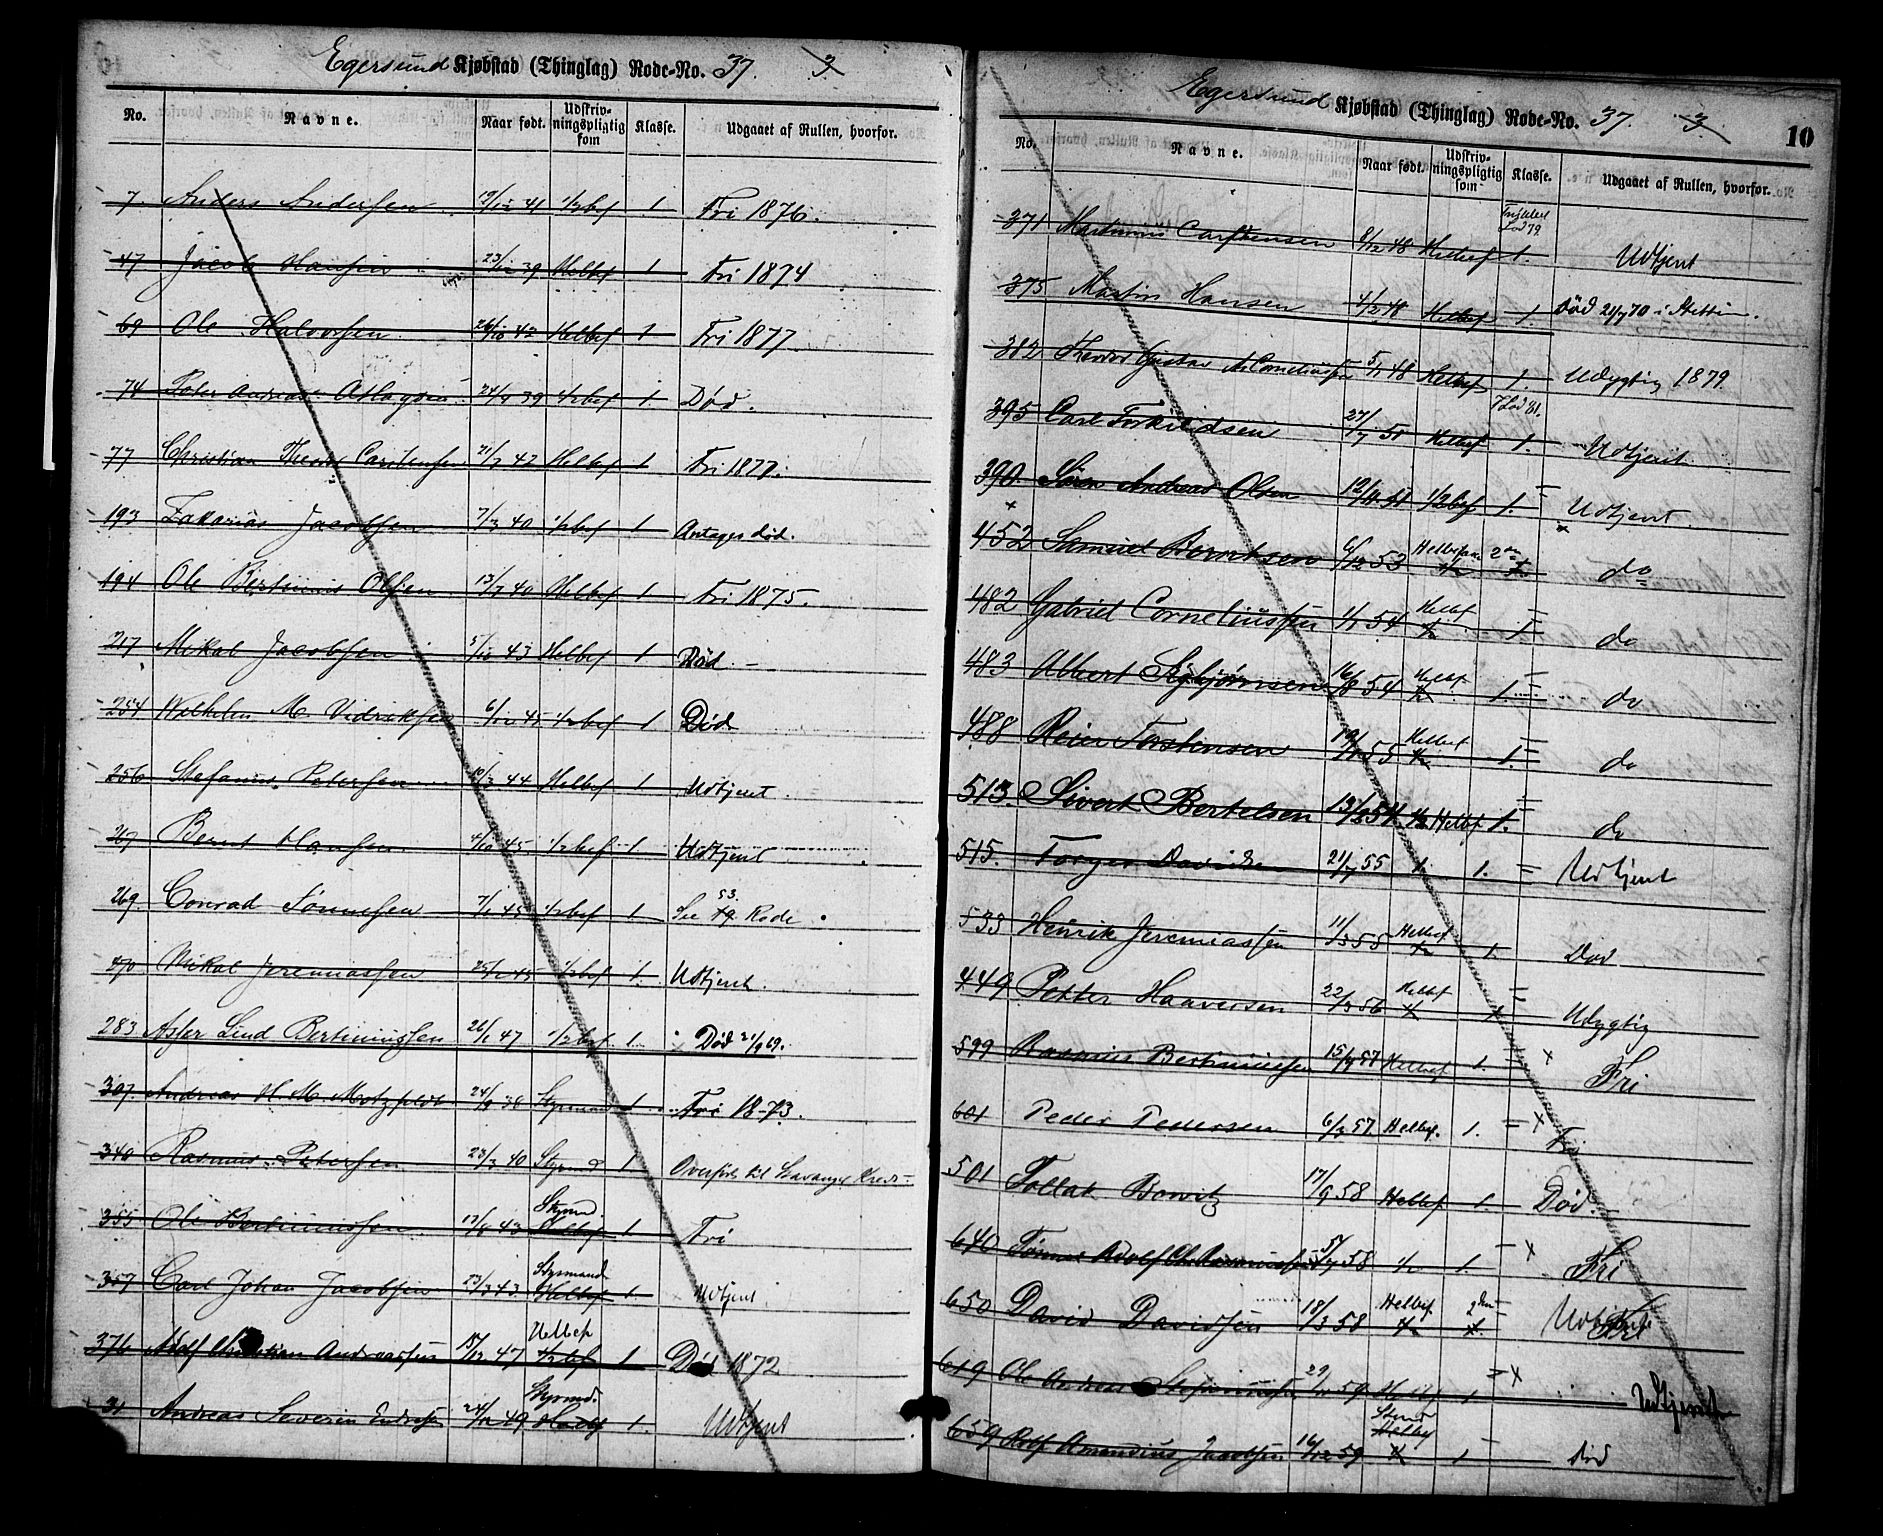 Egersund Kjøbstad (Thinglag) Rode-No. 37. 3
No. Navne. Naar født. Udskriv-ningspligtig som Klasse. Udgaaet af Rullen, hvorfor.
7. Anders Andersen 19/12 41 1/2bef 1 Fri 1876.
47 Jacob Hansen 23/12 39 Helbef 1 Fri 1874
69 Ole Halvorsen 26/10 42 Helbef 1 Fri 1877
74 Peter Andreas Aslagsen 24/4 39 1/2bef 1. Død.
77 Christian Theodor Carstensen 21/7 42 Helbef 1 Fri 1877.
193 Zakarias Jacobsen 7/3 40 1/2bef 1 Antages død.
194 Ole Bertinius Olsen 13/7 40 Helbef 1 Fri 1875.
217 Mikal Jacobsen 5/10 43 Helbef 1 Død.
254 Wilhelm M. Vidriksen 6/12 45 1/2bef 1 Død
256 Stefanus Petersen 10/3 44 Helbef 1 Udtjent.
267 Bernt Hansen 4/10 45 1/2bef 1 Udtjent
269. Conrad Tønnesen 7/1 45 1/2bef 1 See 19. 53. Rode
270 Mikal Jeremiassen 25/1 45 1/2bef 1. Udtjent.
283 Asser Lind Bertiniussen 26/1 47 1/2bef 1. Død 21/9 69.
307. Andreas H. M. Motzfeldt 24/9 38 Styrmand 1 Fri 1873.
340 Rasmus Petersen 23/3 40 Styrmd 1 Overført til Stavanger Kreds
355 Ole Bertiniussen 17/8 43 Styrmd Helbef 1. Fri
357 Carl Johan Jacobsen 23/3 43 Styrmand Helbef 1. Udtjent
376 Adolf Christian Andreassen 18/12 47 Helbef 1/2bef 1 Død 1872
31 Andreas Severin Endresen 24/12 49 Styrmd. Helbf 1. Udtjent
Egersund Kjøbstad (Thinglag) Rode-No. 37. 3
10
No. Navne. Naar født. Udskriv-ningspligtig som Klasse. Udgaaet af Rullen, hvorfor.
371 Martinius Carstensen 8/12 48 Helbef 1. Lod 79. Udtjent
375 Martin Hansen 4/2 48 Helbef 1. Død 21/7 70 i Stettin.
382 Theodor Gustav A. Corneliussen 5/7 48 Helbef 1. Udygtig 1879
395 Carl Torkildsen 27/7 51 Helbef 1. Lod 81. Udtjent
390. Søren Andreas Olsen 12/4 51 1/2bef 1. Udtjent.
452 Samuel Berentsen 6/12 53 Helbefaren 1/2 2den do
482 Gabriel Corneliussen 1/1 54 Helbf 1/2 1 do
483 Albert Asbjørnsen 16/8 54 Helbf 1/2 1. do
488 Reier Torstensen 19/1 55 Helbef 1/2 1. do
513. Sivert Bertelsen 13/2 54 1/2 Helbf 1. do
515. Torger Davidsen 21/7 55 1. Udtjent
533 Henrik Jeremiassen 11/3 55 Helbef 1/2 1. Død
449 Petter Haaversen 22/3 56 Helbf 1/2 1 Udygtig
599 Rasmus Bertiniussen 15/4 57 Helbef 1. Fri
601 Peder Pedersen 6/3 57 Helbef. 1. Fri
501 Tollak Bowitz 17/9 58 Helbef 1. Død.
640 Tønnes Adolf Chr. Rasmussen 5/7 58 1/2 1. Fri
650 David Davidsen 18/3 58 Helbef 1/2 2den 1. Udtjent Fri
619 Ole Andreas Stefanussen 29/11 59 Helbef 1 Udtjent
659 Rolf Amandius Jacobsen 16/12 59 Stmd Helbef 1/2 1 død